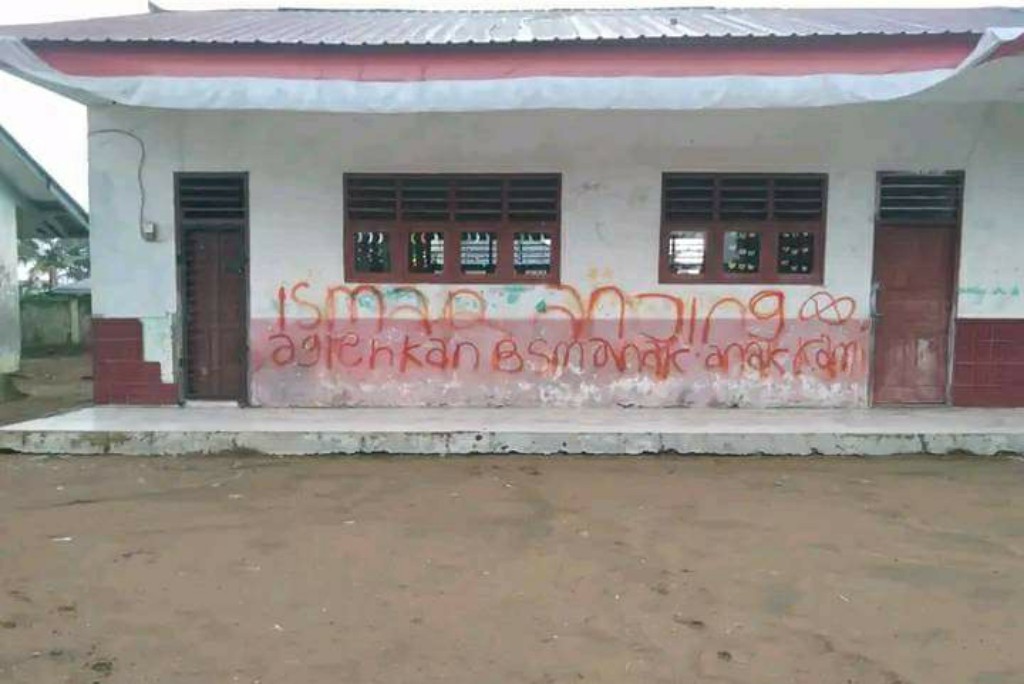 ismaR anjing
agiehkan BSM anak-anak kami